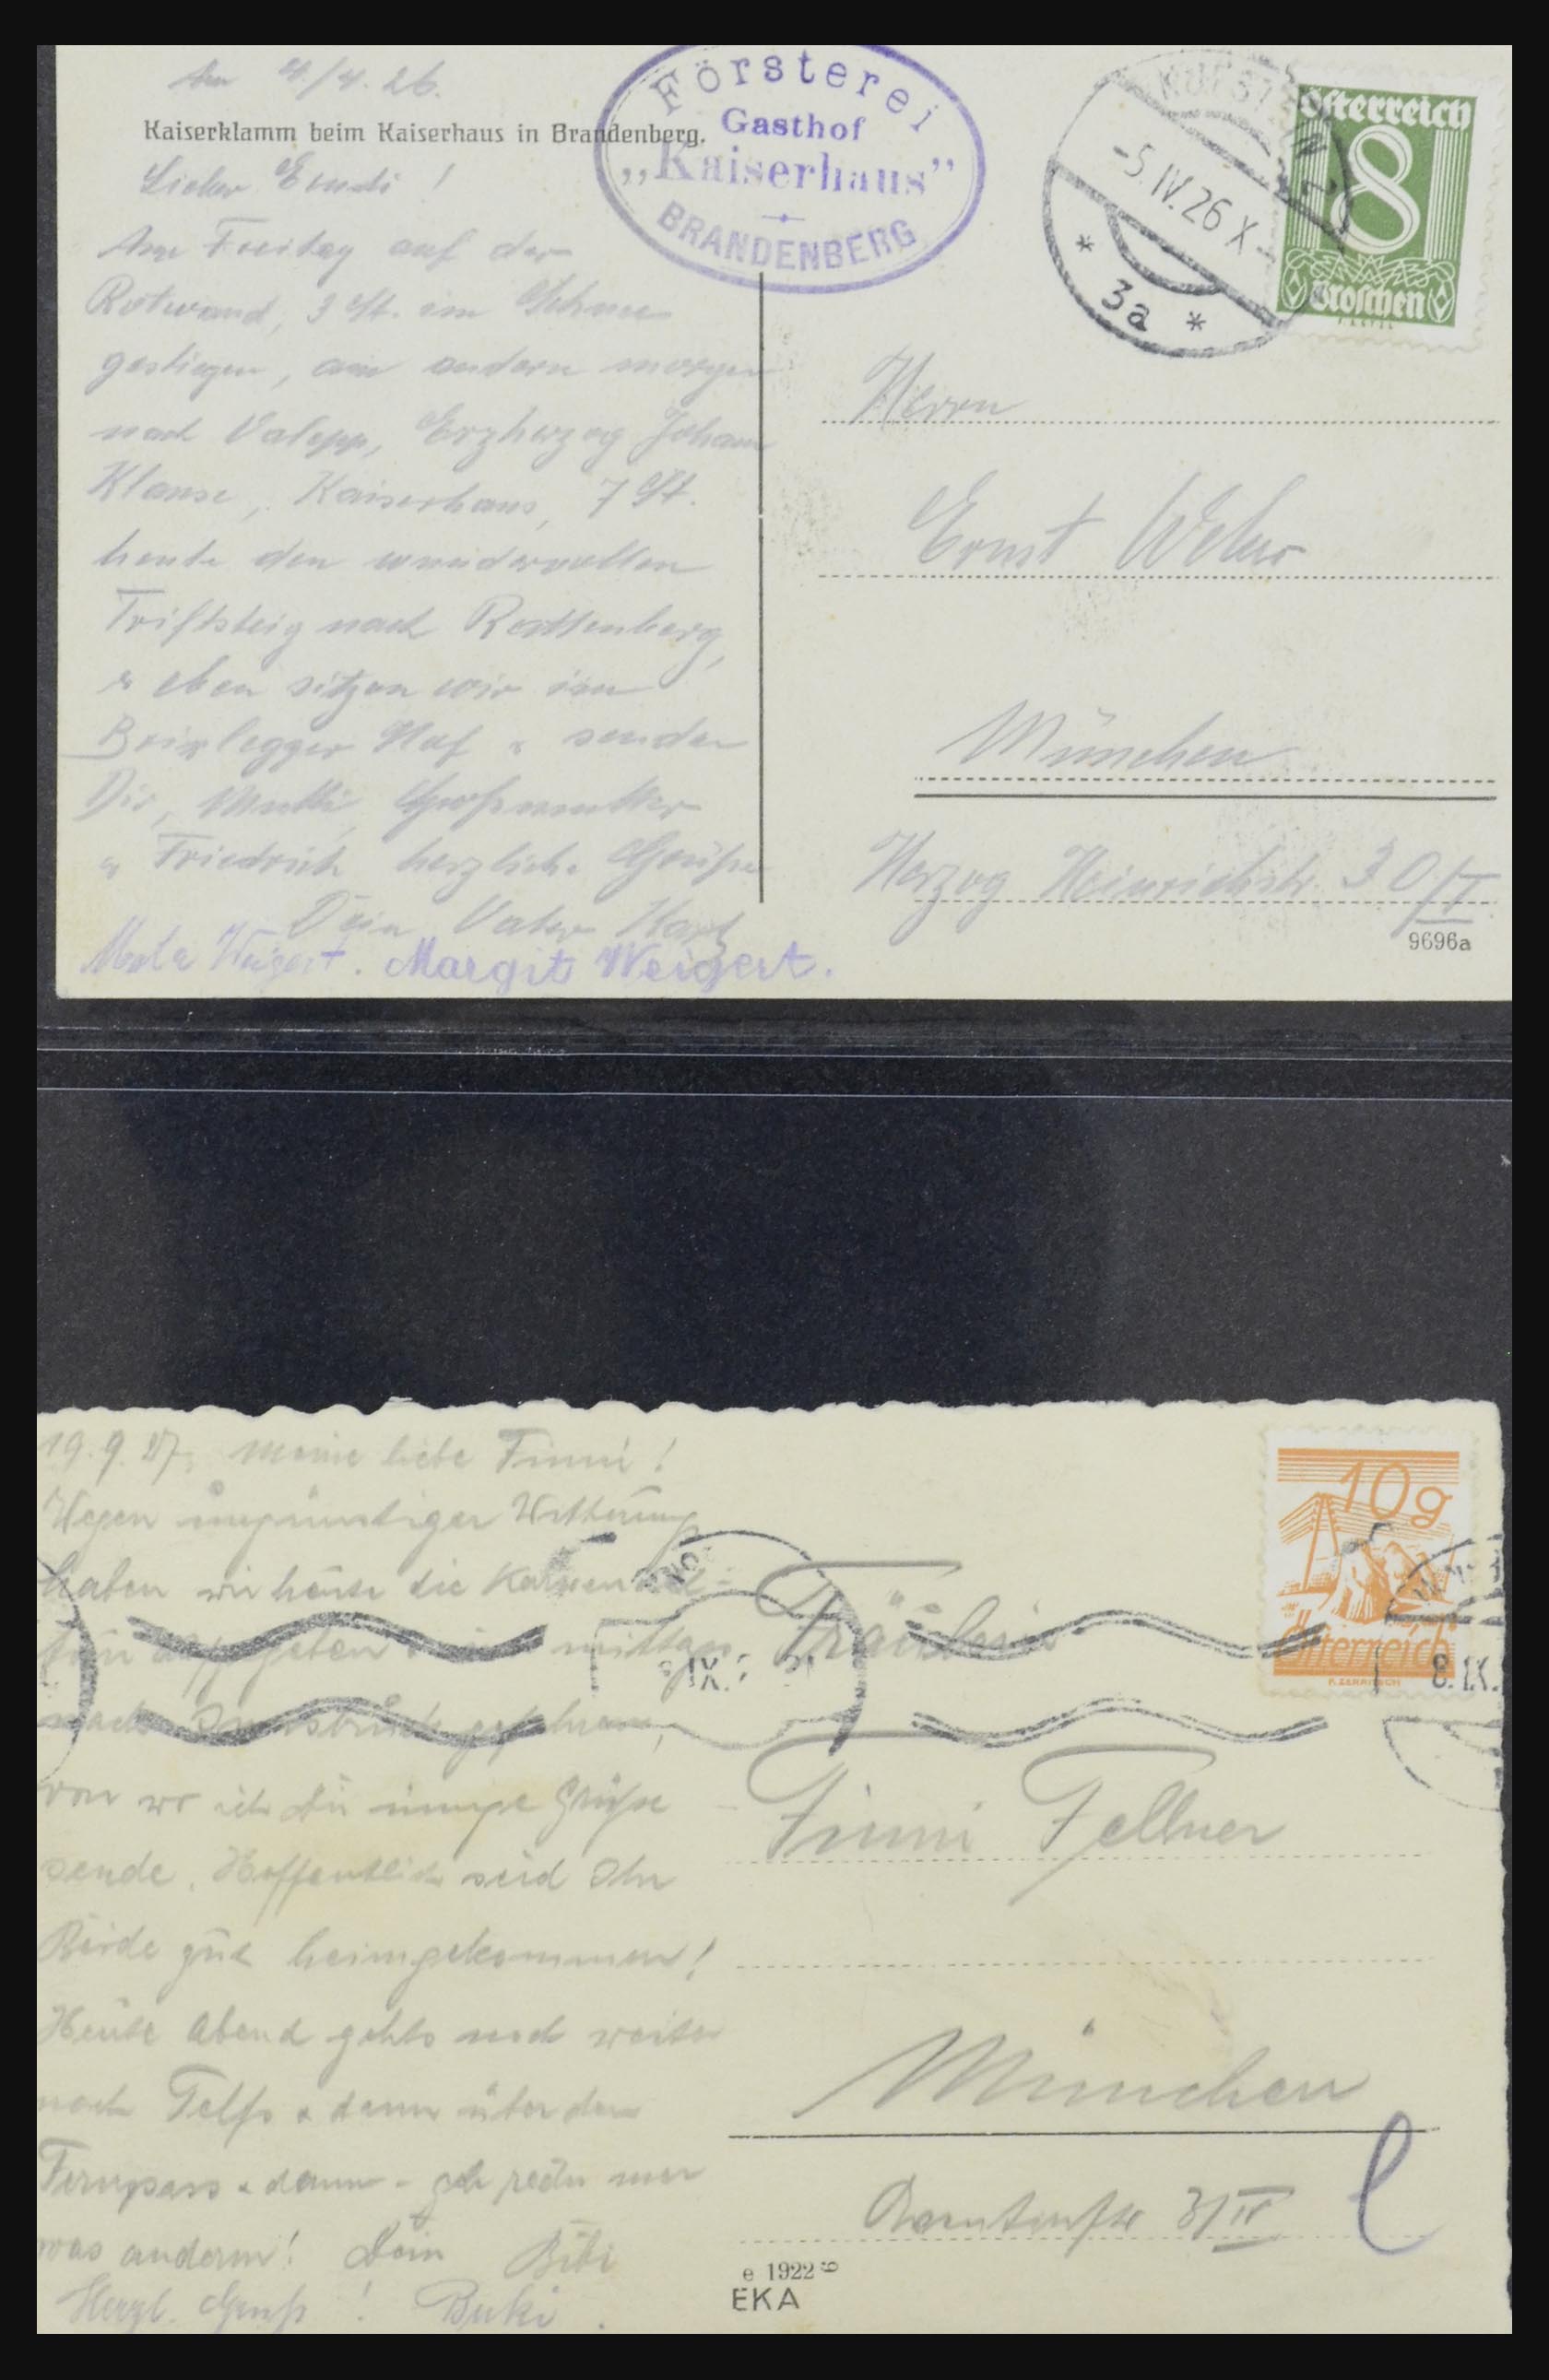 4./4. 26.
Kaiserklamm beim Kaiserhaus in Brandenberg.
Försterei
Gasthof
„Kaiserhaus”
BRANDENBERG
-5.IV.26 X-
* 3a *
Österreich
8
Groschen
Lieber !
Am Freitag auf der
Rotwand, 3 St. im Schnee
gestiegen, am andern morgen
nach Valepp, Erzherzog Johann
Klause, Kaiserhaus, 7 St.
heute den wundervollen
Triftsteig nach Rattenberg,
eben sitzen wir im
Brixlegger Hof senden
Dir, Mutti, Großmutter
u Friedrich herzliche Grüße
Dein Vater
Weigert. Margit Weigert.
Herrn
Ernst Weber
München
Herzog Heinrichstr. 30/II
9696a
19.9.27, Meine liebe Finni!
Wegen ungünstiger Witterung
haben wir heute die Karwendel-
mittags
nach Innsbruck gefahren,
von wo ich Dir Grüße
sende. Hoffentlich seid Ihr
Beide gut heimgekommen!
Heute Abend gehts noch weiter
nach Telfs & dann über den
Fernpass & dann -
was anderm! Dein Bibi
Herzl. Gruß!
10g
Österreich
Fräulein
Finni Fellner
München
3/II
e 1922
EKA